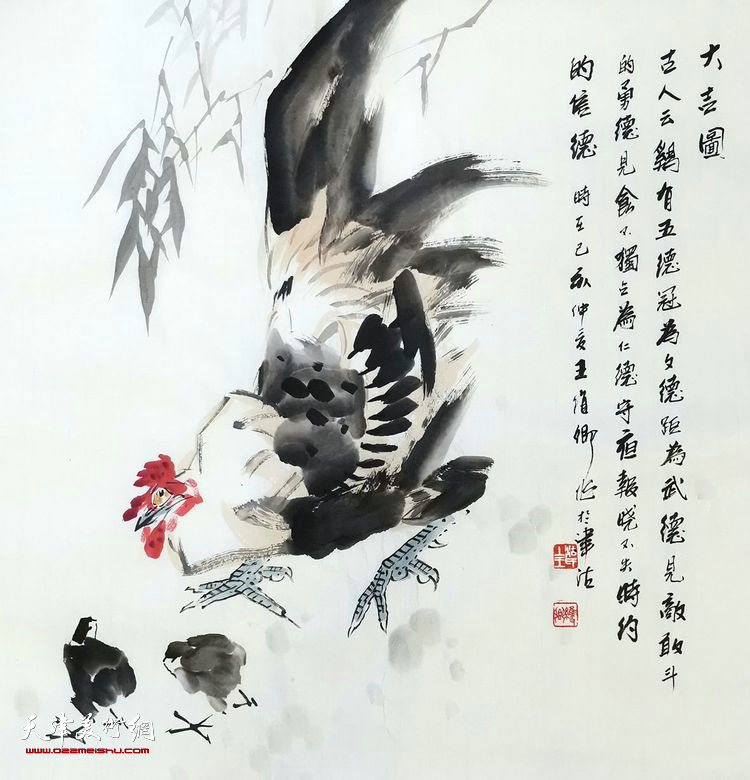 大吉圖
古人云鷄有五德冠為文德距為武德見敵敢斗
的勇德見食不獨占為仁德守夜報曉不失時約
的信德 時在己亥仲夏王俊卿作於津沽
天津美術網
www.022meishu.com